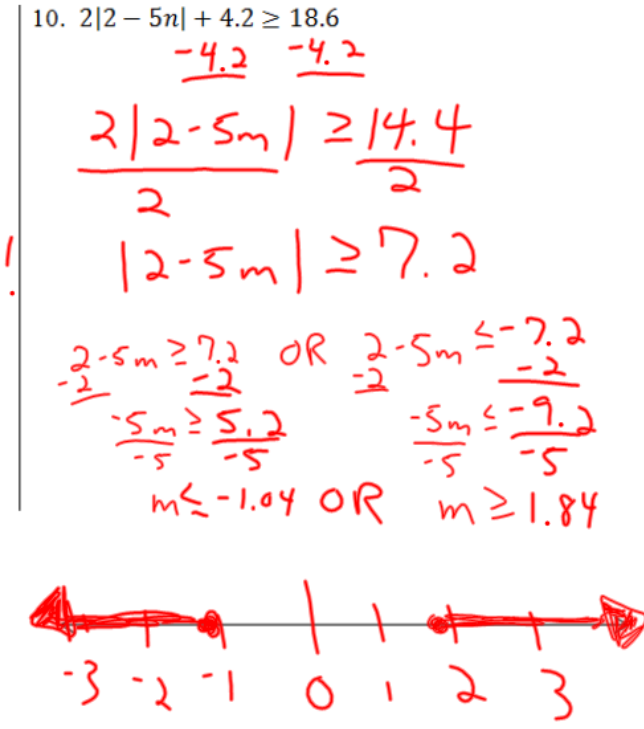 10. 2|2 − 5n| + 4.2 ≥ 18.6
-4.2 -4.2
2|2-5m| ≥ 14.4
2 2
|2-5m| ≥ 7.2
!
2-5m ≥ 7.2 OR 2-5m ≤ -7.2
-2 -2 -2 -2
-5m ≥ 5.2 -5m ≤ -9.2
-5 -5 -5 -5
m ≤ -1.04 OR m ≥ 1.84
-3 -2 -1 0 1 2 3